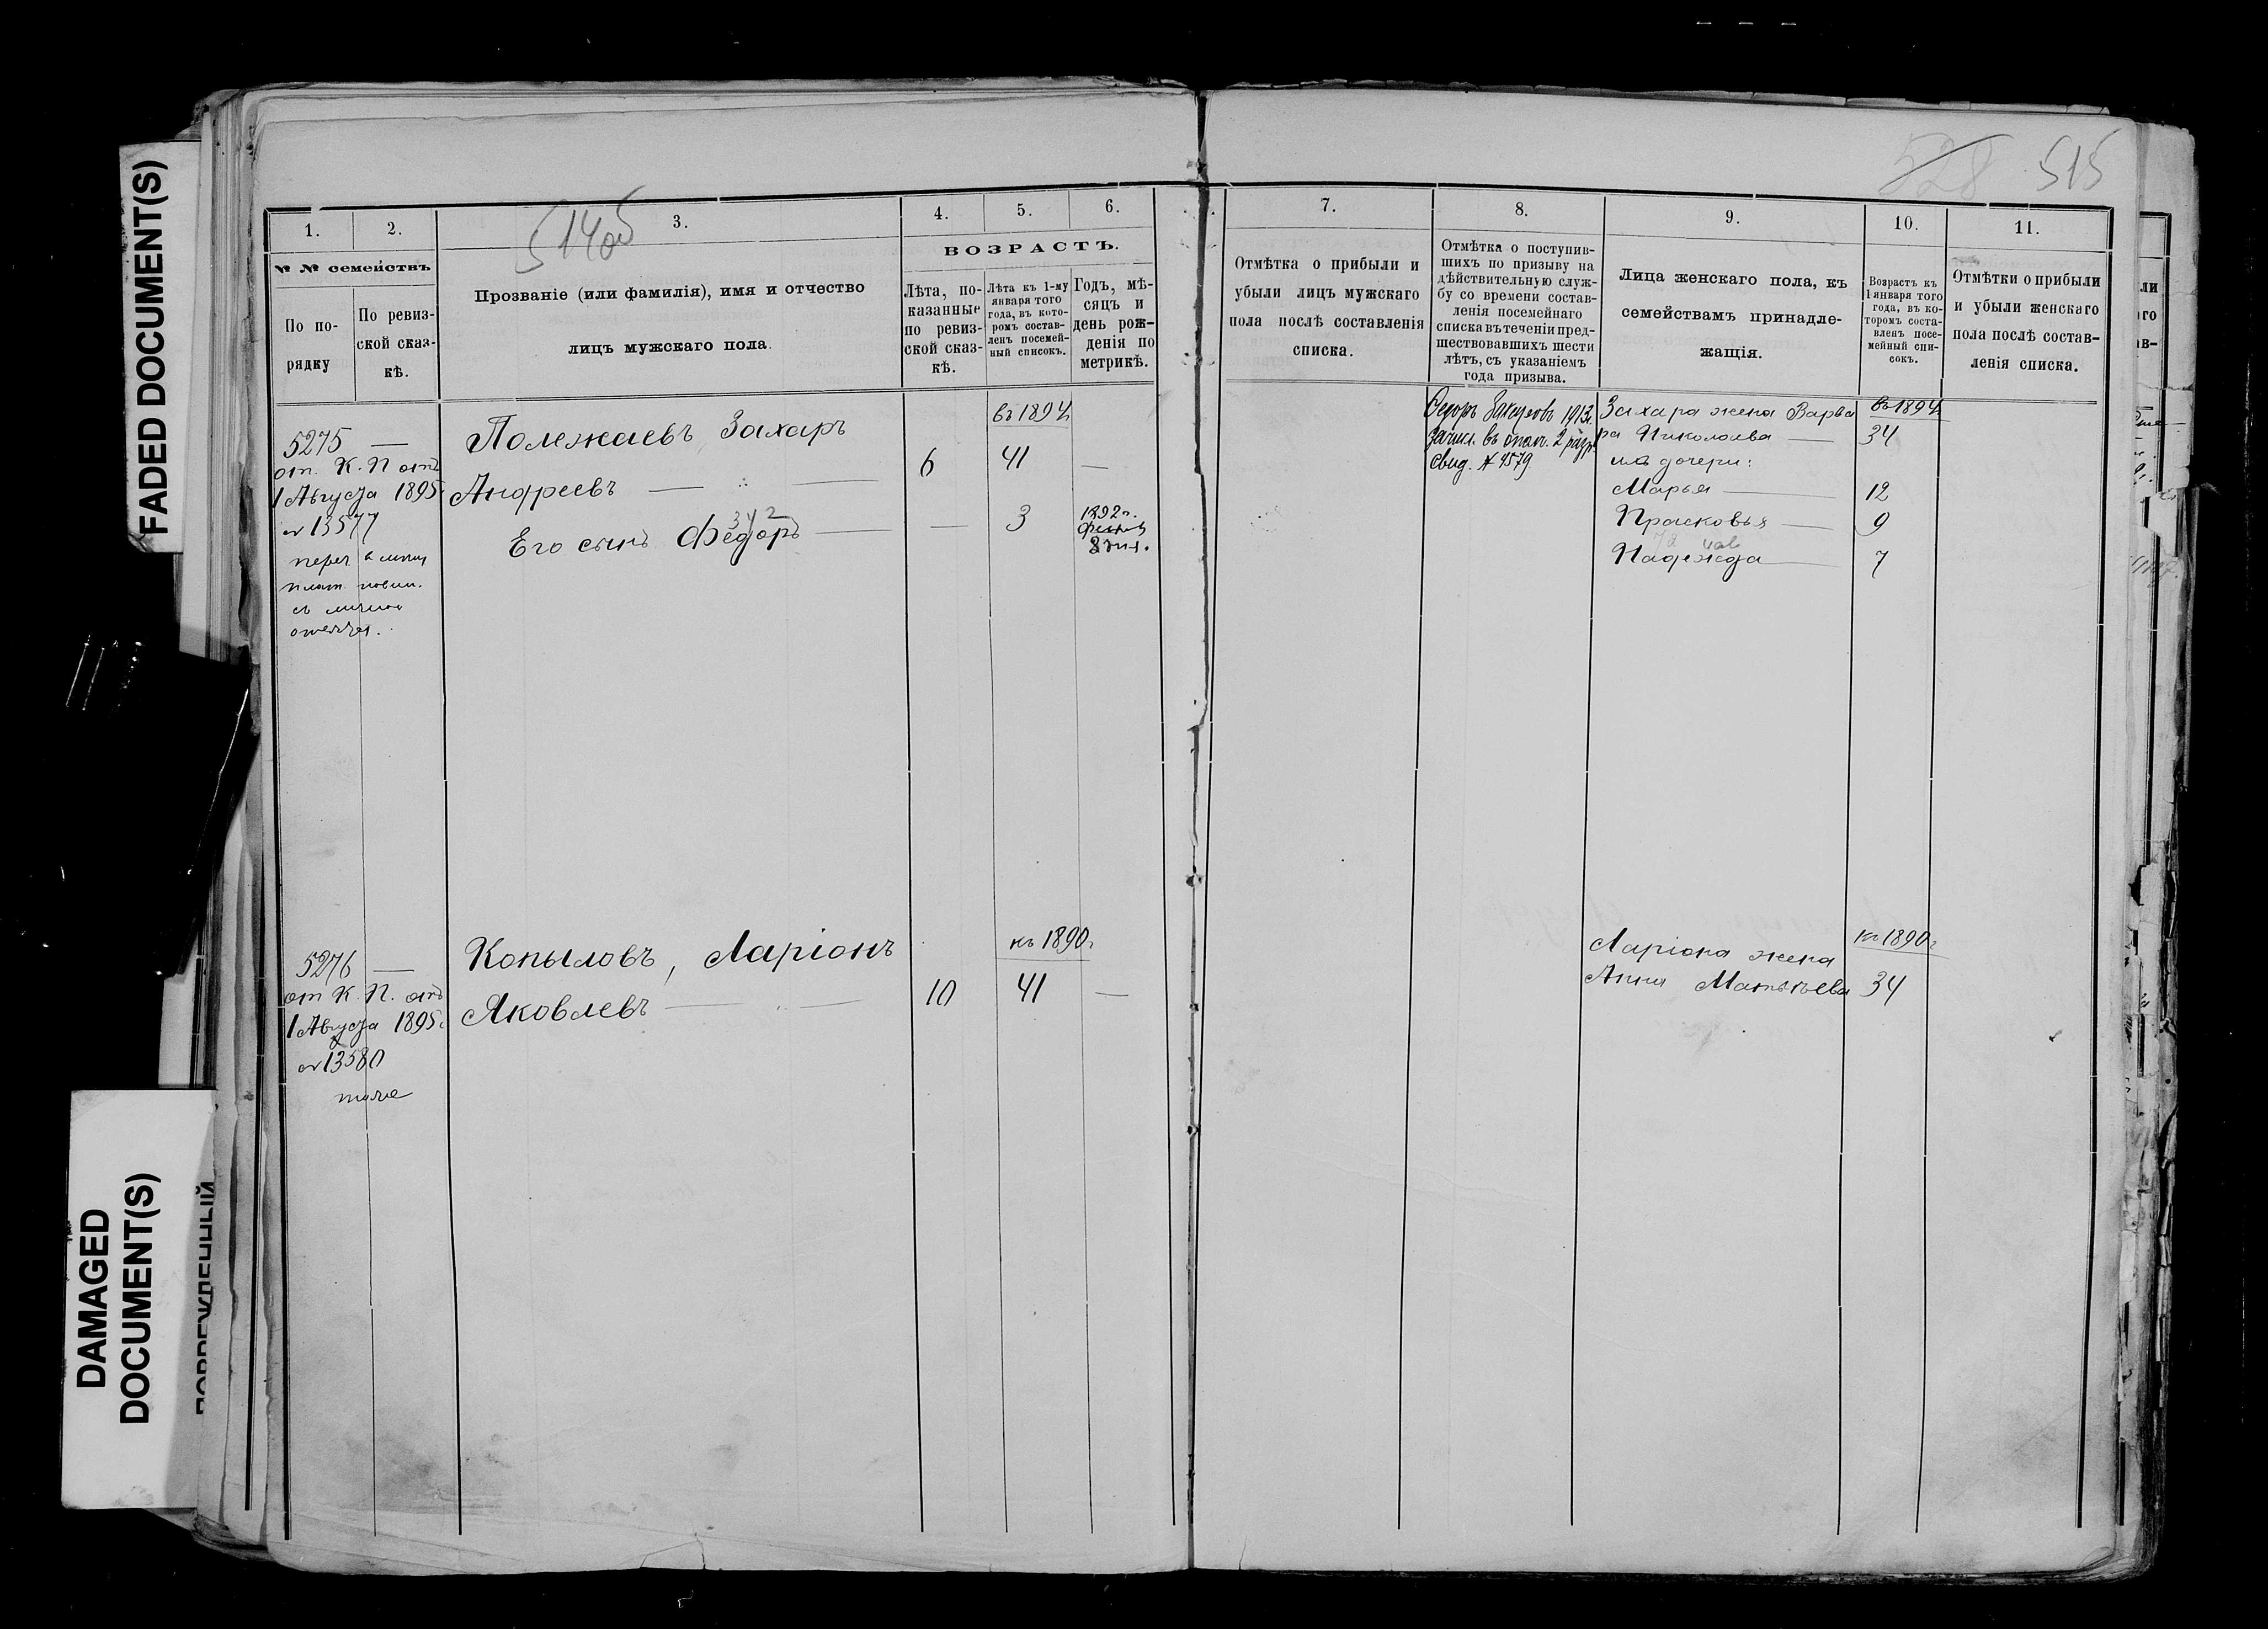 FADED DOCUMENT(S)
DAMAGED
DOCUMENT(S)
514об
1.
2.
3.
4.
5.
6.
№ № семействъ
По по-
рядку
По ревиз-
ской сказ-
кѣ.
Прозваніе (или фамилія), имя и отчество
лицъ мужскаго пола.
ВОЗРАСТЪ.
Лѣта, по-
казанные
по ревиз-
ской сказ-
кѣ.
Лѣта къ 1-му
января того
года, въ кото-
ромъ состав-
ленъ посемей-
ный списокъ.
Годъ, мѣ-
сяцъ и
день рож-
денія по
метрикѣ.
5275 —
от. К. П отъ
1 Августа 1895
№ 13577
Полежаевъ Захаръ
Андреевъ
Его сынъ Федоръ
3 4 2
въ 1894
6 41 —
— 3 1892г.
5276 —
от К. П. отъ
1 Августа 1895г
№ 13580
тоже
Копыловъ, Ларіонъ
Яковлевъ
къ 1890г
10 41 —
528 515
7.
8.
9.
10.
11.
Отмѣтка о прибыли и
убыли лицъ мужскаго
пола послѣ составленія
списка.
Отмѣтка о поступив-
шихъ по призыву на
дѣйствительную служ-
бу со времени состав-
ленія посемейнаго
списка въ теченіи пред-
шествовавшихъ шести
лѣтъ, съ указаніемъ
года призыва.
Лица женскаго пола, къ
семействамъ принадле-
жащія.
Возрастъ къ
1 января того
года, въ ко-
торомъ соста-
вленъ посе-
мейный спи-
сокъ.
Отмѣтки о прибыли
и убыли женскаго
пола послѣ состав-
ленія списка.
Федоръ Захаровъ 1913г.
зачисл. въ опол. 2 разр.
свид. № 4579
Захара жена Варва
ра Николаева
ихъ дочери:
Марья
Прасковья
Надежда
въ 1894
34
12
9
7
Ларіона жена
Анна Матвѣева
къ 1890г
34